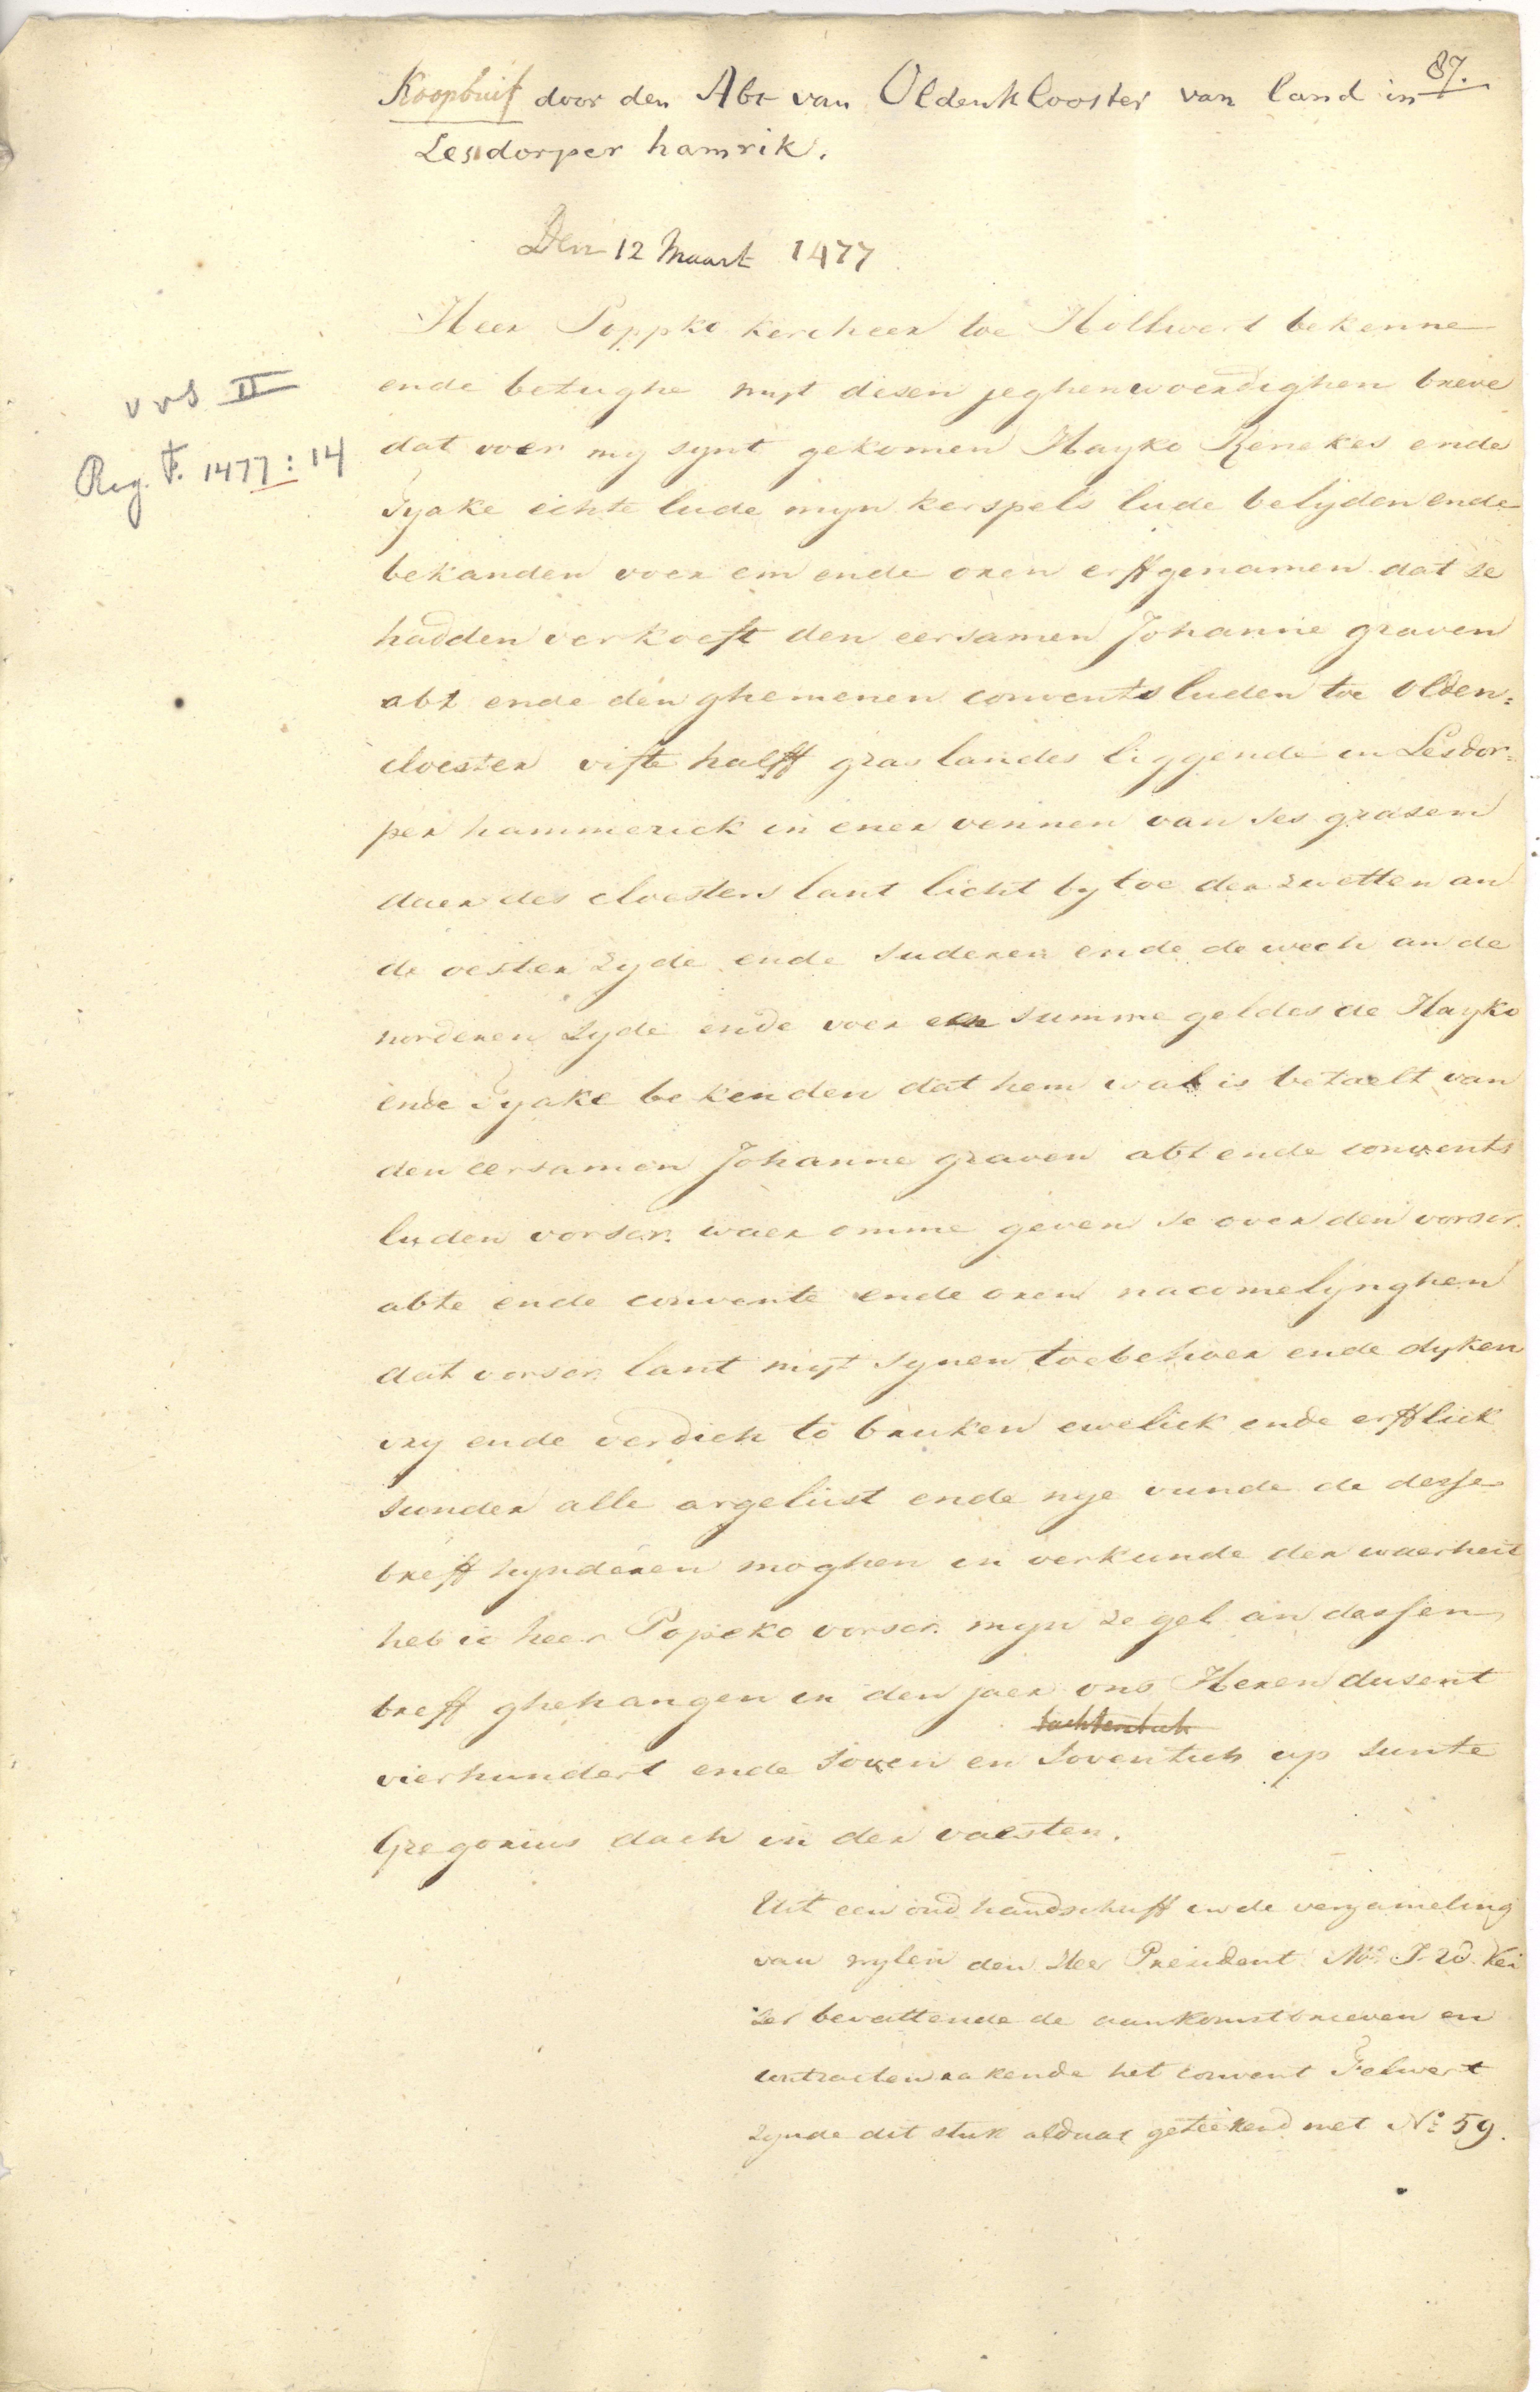 87.
Koopbrief door den Abt van Oldenklooster van land in
Lesdorper hamrik.
Den 12 Maart 1477
vvs II
Reg. F. 1477: 14
Heer Poppko kercheer toe Hollwert bekenne
ende betughe myt desen jeghenwoerdighen breve
dat voer my synt gekomen Hayko Renekes ende
Tyake echte lude myn kerspels lude belyden ende
bekanden voer em ende oren erffgenamen dat se
hadden verkoeft den eersamen Johanne graven
abt ende den ghemenen convents luden toe Olden=
cloester vifte halff gras landes liggende in Lesdor=
per hammerick in ener vennen van ses grasen
daer des cloesters lant licht by toe der zwetten an
de oester zyde ende suderen ende de wech an de
norderen zyde ende voer een summe geldes de Hayko
ende Tyake bekenden dat hem wal is betaelt van
den eersamen Johanne graven abt ende convents
luden vorscr. waer omme geven se over den vorscr.
abte ende convente ende oren nacomelynghen
dat vorscr. lant myt synen toebehoer ende dyken
vry ende verdich to bruken ewelick ende erfflick
sunder alle argelist ende nye vunde de desse
breff hynderen moghen in verkunde der waerheit
heb ic heer Popeko vorscr. myn zegel an dessen
breff ghehangen in den jaer ons Heren dusent
tachtentich
vierhundert ende soven en soventich up sunte
Gregorius dach in der vaesten.
Uit een oud handschrift in de verzameling
van wylen den Heer President Mr. J. W. Kei
zer bevattende de aankomstbrieven en
contracten rakende het convent Felwert
zynde dit stuk aldaar geteekend met No. 59.